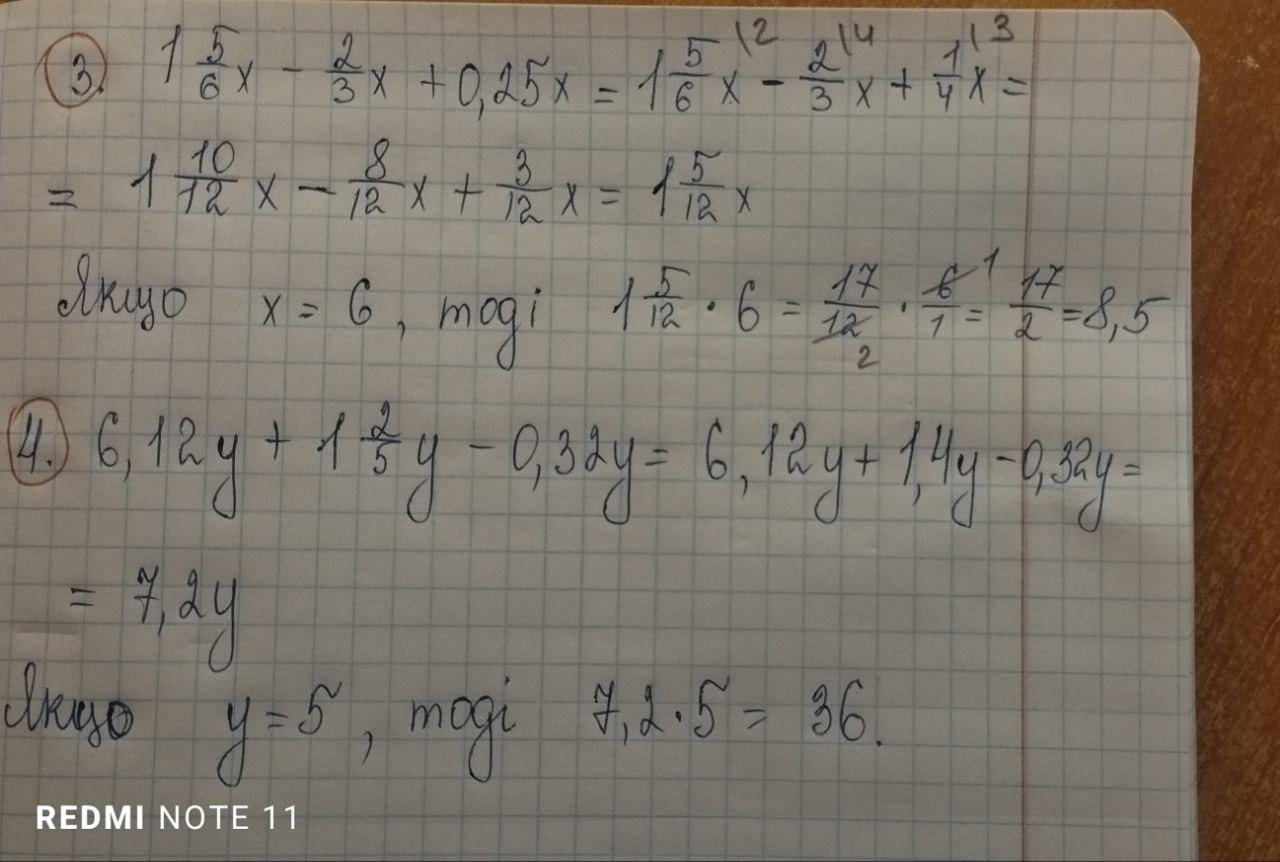 3. 1 5/6 x - 2/3 x + 0,25x = 1 5/6 x \2 - 2/3 \4 x + 1/4 x \3 =
= 1 10/12 x - 8/12 x + 3/12 x = 1 5/12 x
Якщо x = 6, тоді 1 5/12 · 6 = 17/12 2 · 6/1 1 = 17/2 = 8,5
4. 6,12y + 1 2/5 y - 0,32y = 6,12y + 1,4y - 0,32y =
= 7,2y
Якщо y = 5, тоді 7,2 · 5 = 36.
REDMI NOTE 11